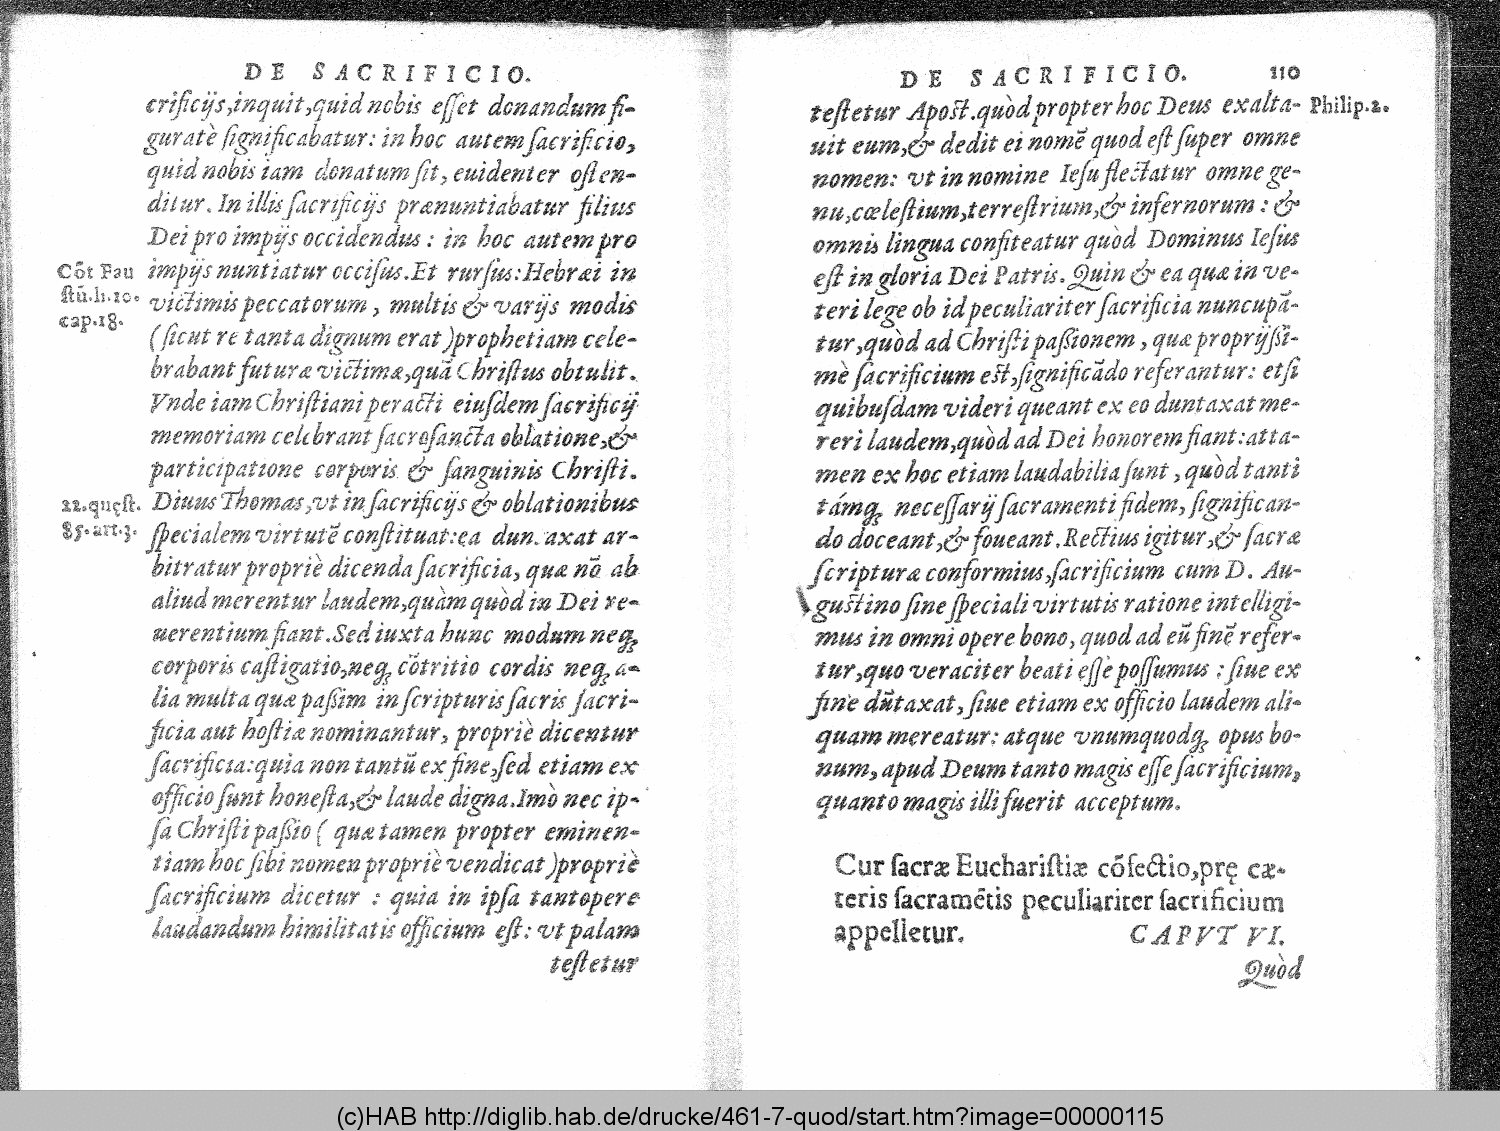 DE SACRIFICIO.
crificijs,inquit,quid nobis eſſet donandum fi-
guratè ſignificabatur: in hoc autem ſacrificio,
quid nobis iam donatum ſit, euidenter oſten-
ditur. In illis ſacrificijs prænuntiabatur filius
Dei pro impijs occidendus : in hoc autem pro
Cõt Fau
impijs nuntiatur occiſus.Et rurſus:Hebræi in
ſtũ.li.20.
victimis peccatorum, multis & varijs modis
cap.18.
(ſicut re tanta dignum erat )prophetiam cele-
brabant futuræ victimæ,quã Chriſtus obtulit.
Vnde iam Chriſtiani peracti eiuſdem ſacrificij
memoriam celebrant ſacroſancta oblatione,&
participatione corporis & ſanguinis Chriſti.
22.quęſt.
Diuus Thomas,vt in ſacrificijs & oblationibus
85.art.3.
ſpecialem virtutẽ conſtituat:ea duntaxat ar-
bitratur propriè dicenda ſacrificia, quæ nõ ab
aliud merentur laudem,quàm quòd in Dei re-
uerentium fiant.Sed iuxta hunc modum neqꝫ
corporis caſtigatio,neqꝫ cõtritio cordis neqꝫ a-
lia multa quæ paſſim in ſcripturis ſacris ſacri-
ficia aut hoſtiæ nominantur, propriè dicentur
ſacrificia:quia non tantũ ex fine,ſed etiam ex
officio ſunt honeſta,& laude digna.Imò nec ip-
ſa Chriſti paſſio ( quæ tamen propter eminen-
tiam hoc ſibi nomen propriè vendicat )propriè
ſacrificium dicetur : quia in ipſa tantopere
laudandum himilitatis officium eſt: vt palam
teſtetur
DE SACRIFICIO. 110
teſtetur Apoſt.quòd propter hoc Deus exalta- Philip.2.
uit eum,& dedit ei nomẽ quod eſt ſuper omne
nomen: vt in nomine Ieſu flectatur omne ge-
nu,cœleſtium,terreſtrium,& infernorum : &
omnis lingua confiteatur quòd Dominus Ieſus
eſt in gloria Dei Patris. Quin & ea quæ in ve-
teri lege ob id peculiariter ſacrificia nuncupã-
tur,quòd ad Chriſti paſſionem, quæ proprijſſi-
mè ſacrificium eſt,ſignificãdo referantur: etſi
quibuſdam videri queant ex eo duntaxat me-
reri laudem,quòd ad Dei honorem fiant:atta-
men ex hoc etiam laudabilia ſunt, quòd tanti
támqꝫ neceſſarij ſacramenti fidem, ſignifican-
do doceant,& foueant.Rectius igitur,& ſacræ
ſcripturæ conformius,ſacrificium cum D. Au-
guſtino ſine ſpeciali virtutis ratione intelligi-
mus in omni opere bono, quod ad eũ finẽ refer-
tur,quo veraciter beati eſſe poſſumus : ſiue ex
fine dũtaxat, ſiue etiam ex officio laudem ali-
quam mereatur: atque vnumquodqꝫ opus bo-
num, apud Deum tanto magis eſſe ſacrificium,
quanto magis illi fuerit acceptum.
Cur ſacræ Euchariſtiæ cõfectio,prę cæ-
teris ſacramẽtis peculiariter ſacrificium
appelletur. CAPVT VI.
Quòd
(c)HAB http://diglib.hab.de/drucke/461-7-quod/start.htm?image=00000115